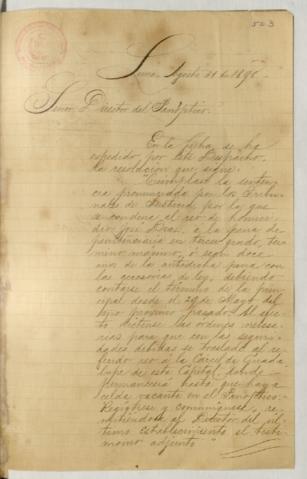 503
Lima, Agosto 31 de 1890
Señor Director del Panóptico.
En la fecha se ha
expedido por este Despacho
la resolución que sigue:
"Cúmplase la senten
cia pronunciada por los Tribu
nales de Justicia por la que
se condena al reo de homici
dio José Dias, a la pena de
penitenciaria en tercer grado, tér
mino máximo, ó sean doce
años de la antedicha pena con
las accesorias de ley, debiendo
contarse el término de la prin
cipal desde el 29 de Mayo del
año próximo pasado. Al efec
to díctense las órdenes necesa
rias para que con las seguri
dades debidas se traslade al re
ferido reo á la Cárcel de Guada
lupe de esta Capital, donde
permanecerá hasta que haya
celda vacante en el Panóptico.
Regístrese y comuníquese, re
mitiéndose al Director del úl
timo establecimiento el testi
monio adjunto"